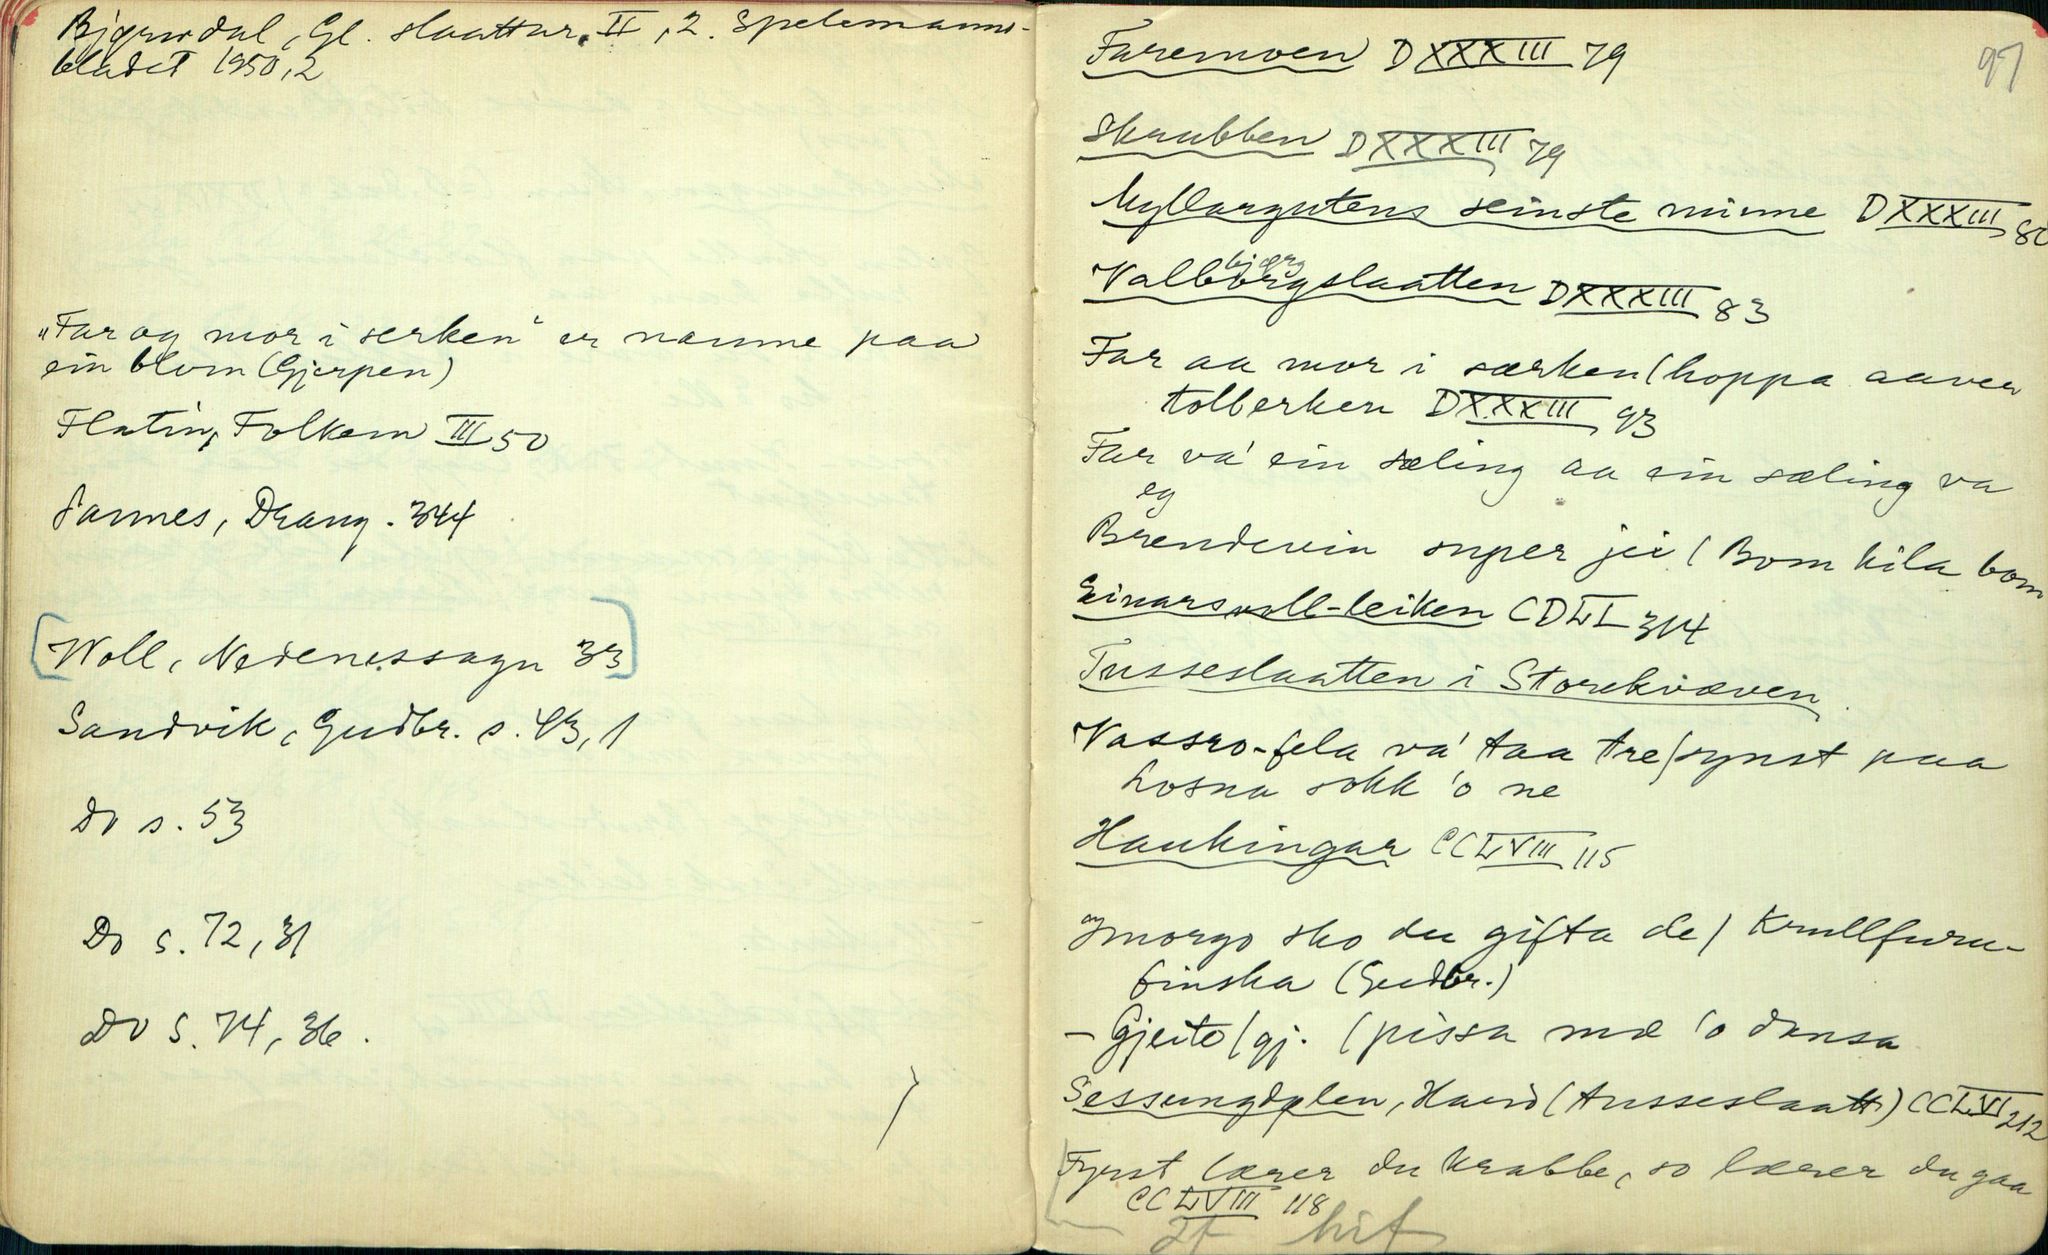 Bjørndal, Gl. slaattar, II, 2. Spelemanns-
bladet 1950, 2
"Far og mor i serken" er namne paa
ein blom (Gjerpen)
Flatin, Folkem III 50
Sannes, Drang. 344
[Woll, Nedenessagn 33]
Sandvik, Gudbr. s. 43, 1
Do s. 53
Do s. 72, 31
Do s. 74, 36.
97
Faremoen DXXXIII 79
Skrubben DXXXIII 79
Myllargutens seinste minne DXXXIII 80
bjørg
Valborgslaatten DXXXIII 83
Far aa mor i særken / hoppa aaver
tolberken DXXXIII 93
Far va' ein sæling aa ein sæling va
eg
Brendevin super jei / Bom kila bom
Einarsvoll-leiken CDLI 314
Tusseslaatten i Storekvæven
Vassro-fela va' taa tre / synst paa
Losna sokk 'o ne
Haukingar CCLVIII 115
Imorgo sko du gifta de / Krullfuru-
finska (Gudbr.)
- Gjeito / gj. / pissa mæ 'o dansa
Sessungdølen, Havd (tusseslaatt) CCLVI 212
Fyrst lærer du krabbe, so lærer du gaa
CCLVIII 118